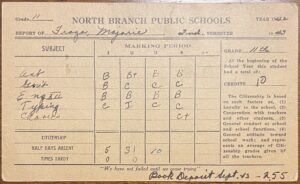 Grade 11 NORTH BRANCH PUBLIC SCHOOLS YEAR 1942
REPORT OF Marjorie 2nd. SEMESTER 1943
SUBJECT MARKING PERIOD GRADE 11th
1 2 3 4
Art B B+ B B
Govt B C C C
Eng B B B B
Typing C I C C
Chorus C+
At the beginning of the School Year this student had a total of:
CREDITS 10
The Citizenship is based on such factors as, (1) Loyalty to the school, (2) Cooperation with teachers and other students, (3) General conduct at school and school functions, (4) General attitude toward school work; and represents an average of Citizenship grades given by all the teachers.
CITIZENSHIP
HALF DAYS ABSENT 5 3½ 10
TIMES TARDY 0
"We have not failed until we cease trying"
Book Deposit Sept. 43 - 2.55